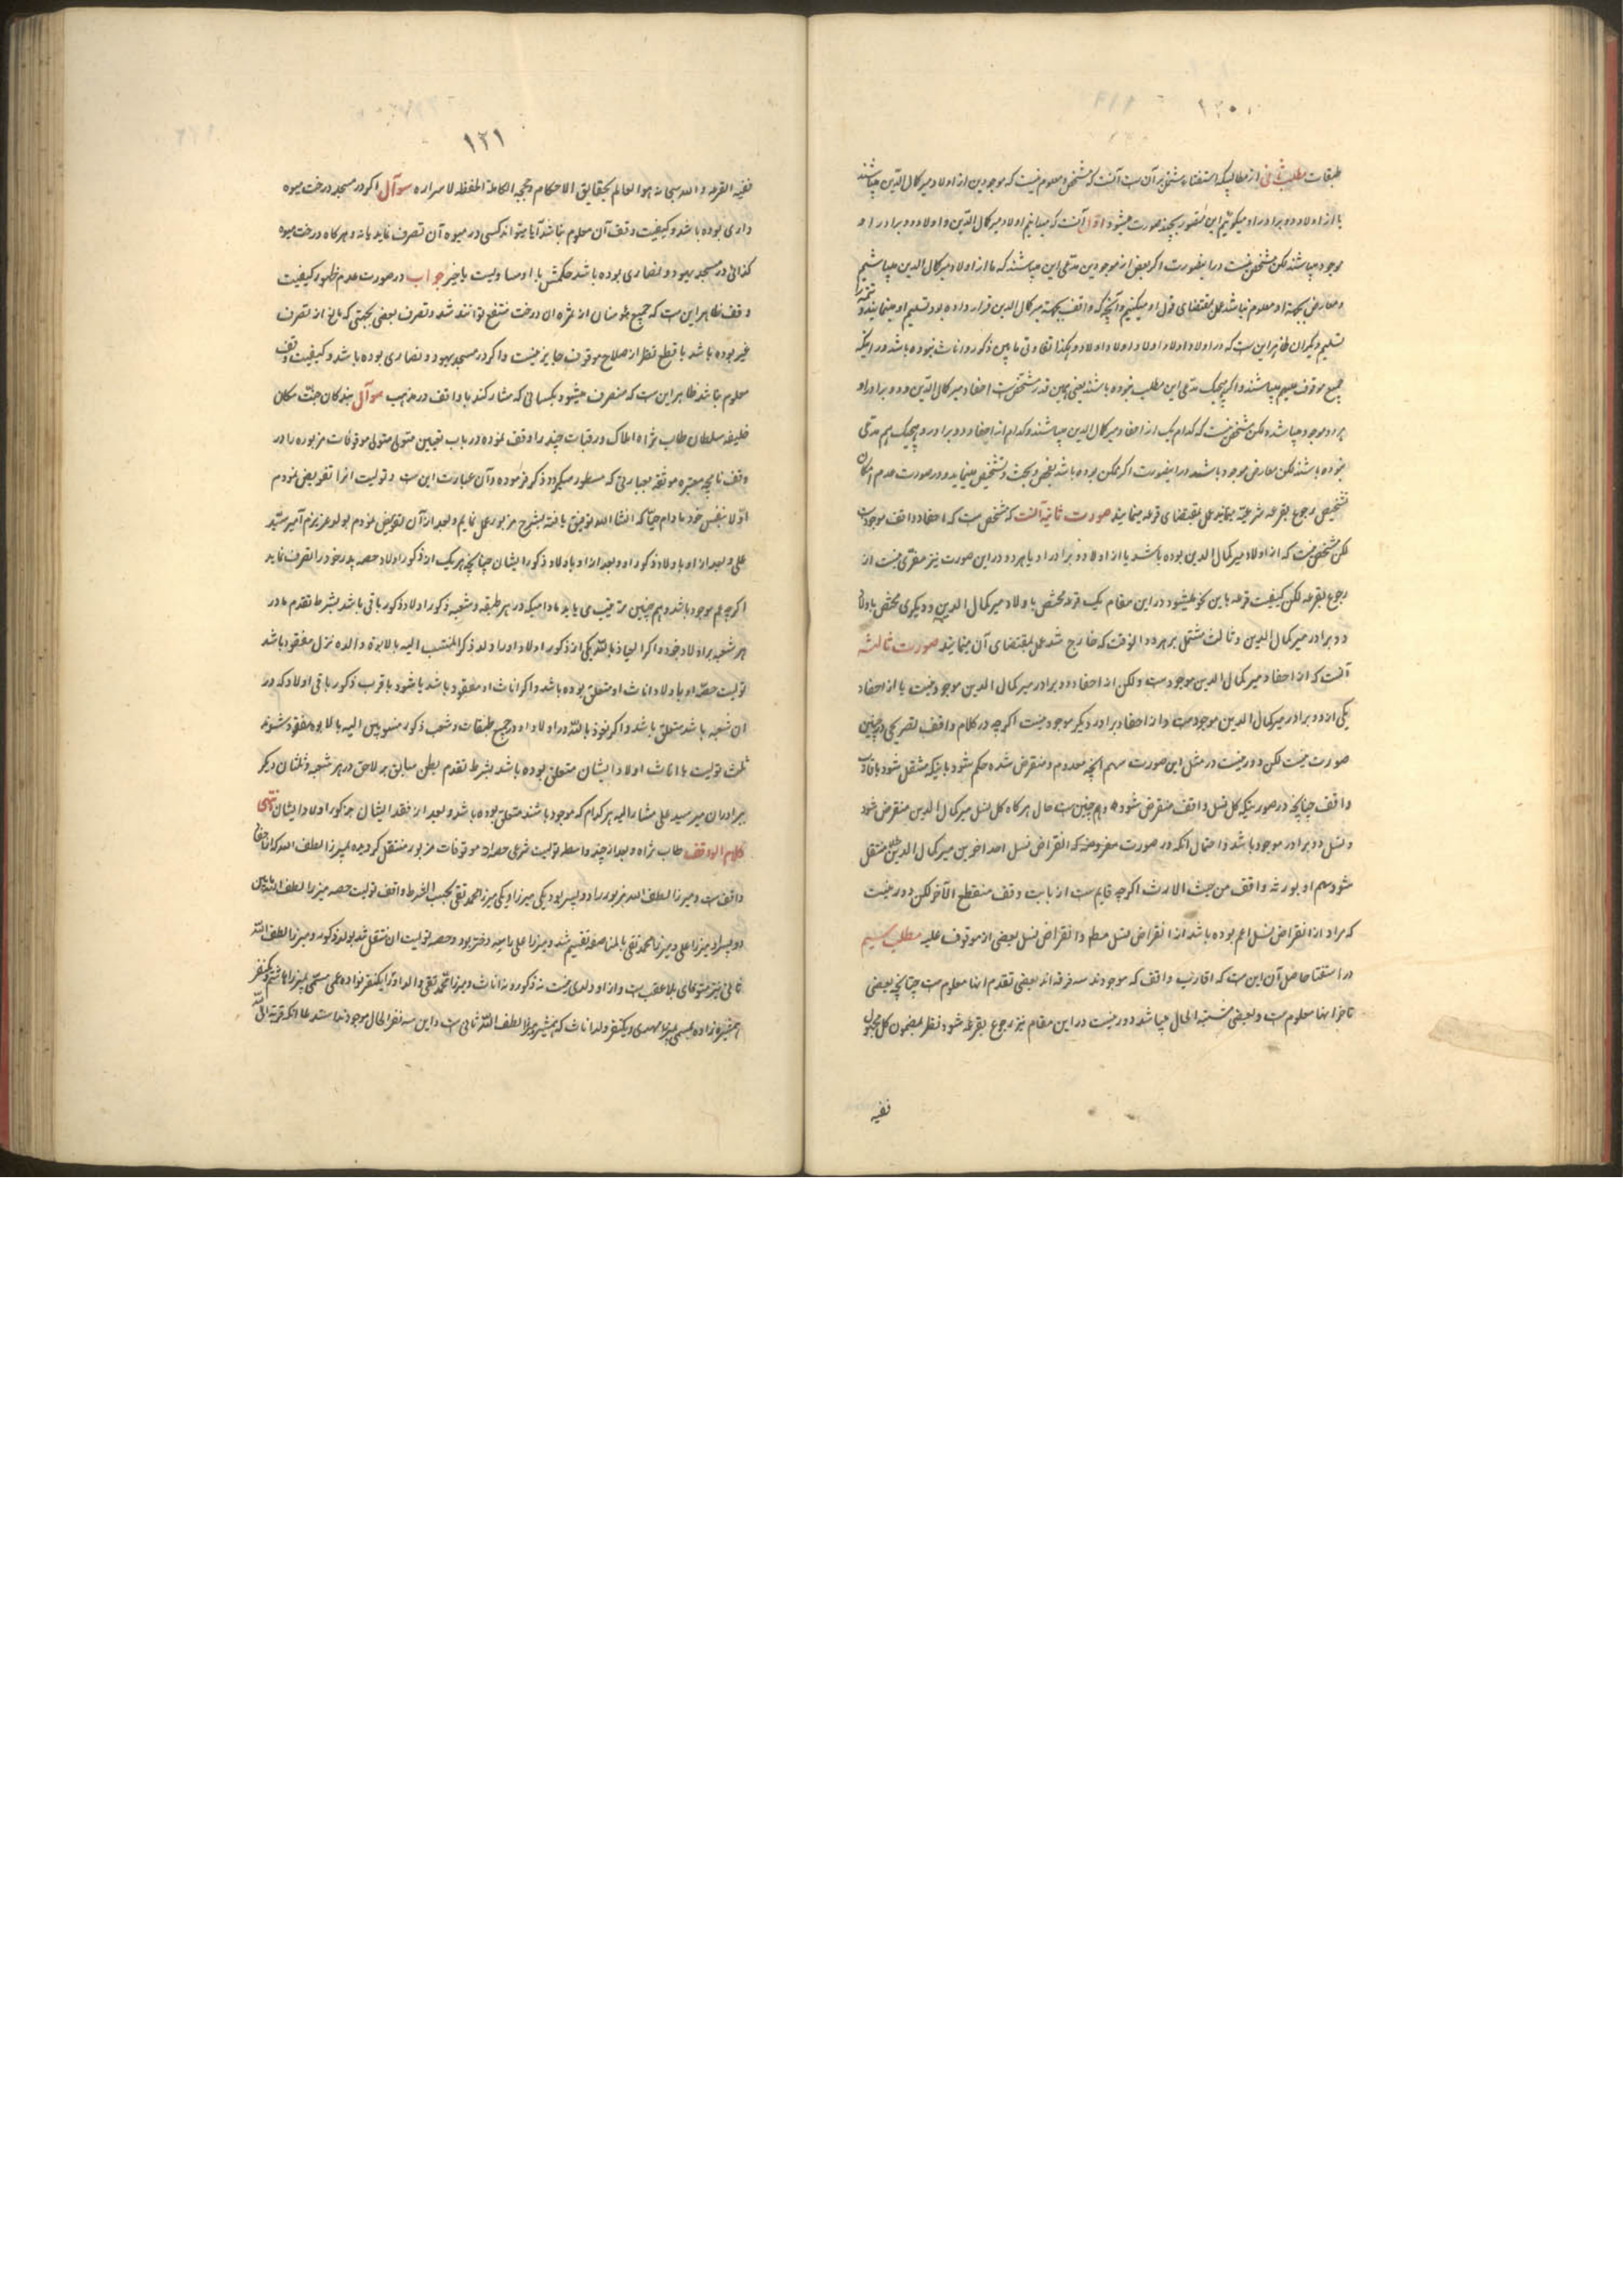 ۱۲۰
طبقات مطلب ثانی از مطالبیکه استفتاء مشتمل بر آن ست آنست که مشخص و معلوم نیست که موجودین از اولاد میر کمال الدین میباشند
یا از اولاد دو برادر او میگوئیم این متصور بچند صورت میشود اول آنست که میدانیم اولاد میر کمال الدین و اولاد دو برادر او
موجود میباشند لکن مشخص نیست در اینصورت اگر بعض از موجودین مدعی این میباشند که ما از اولاد میر کمال الدین میباشیم
و معارض بجهة او معلوم نباشد عمل بمقتضای قول او میکنیم و آنچه که واقف بجهة میر کمال الدین قرار داده بود تسلیم او مینمایند و
تسلیم دیگران ظاهر این ست که در اولاد اولاد و اولاد اولاد و هکذا تفاوتی مابین ذکور و اناث نبوده باشد در اینکه
جمیع موقوف علیهم میباشند و اگر هیچیک مدعی این مطلب نبوده باشند یعنی همین قدر مشخص ست احفاد میر کمال الدین و دو برادر او
هر دو موجود میباشد و لکن مشخص نیست که کدام یک از احفاد میر کمال الدین میباشند و کدام از احفاد دو برادر و هیچیک هم مدعی
نبوده باشند لکن معارض موجود باشد در اینصورت اگر ممکن بوده باشد بفحص و بحث و تشخیص مینماید و در صورت عدم امکان
تشخیص رجوع بقرعه شرعیه نمایند عمل بمقتضای قرعه مینمایند صورت ثانیه آنست که مشخص ست که احفاد واقف موجودست
لکن مشخص نیست که از اولاد میر کمال الدین بوده باشد یا از اولاد دو برادر او یا هر دو در این صورت نیز مفری نیست از
رجوع بقرعه لکن کیفیت قرعه باین نحو میشود در این مقام یک قرعه مختص با ولاد میر کمال الدین و دیگری مختص باولاد
دو برادر میر کمال الدین و ثالث مشتمل بر هر دو الوقت که خارج شد عمل بمقتضای آن مینمایند صورت ثالثه
آنست که از احفاد میر کمال الدین موجودست ولکن از احفاد دو برادر میر کمال الدین موجود نیست یا از احفاد
یکی از دو برادر میر کمال الدین موجودست و از احفاد برادر دیگر موجود نیست اگرچه در کلام واقف تصریحی در چنین
صورت نیست لکن دور نیست در مثل این صورت سهم آنچه معدوم و منقرض شده حکم شود باینکه منتقل شود باقارب
واقف چنانچه در صورتیکه کل نسل واقف منقرض شود و هم چنین ست حال هر گاه کل نسل میر کمال الدین منقرض شود
و نسل دو برادر موجود باشد و احتمال آنکه در صورت مفروضه که انقراض نسل احد اخرین میر کمال الدین مثلا منتقل
شود سهم او بورثه واقف من حیث الارث اگرچه قایم ست از بابت وقف منقطع الآخر لکن دور نیست
که مراد از انقراض نسل اعم بوده باشد از انقراض نسل مط و انقراض نسل بعضی از موقوف علیه مطلب سیم
در استفتا حاصل آن این ست که اقارب واقف که موجودند سه فرقه اند بعضی تقدم انها معلوم ست چنانچه بعضی
تاخر انها معلوم ست و بعضی مشتبه الحال میباشد دور نیست در این مقام نیز رجوع بقرعه شود نظر بمضمون کل مجهول
ففیه
۱۲۱
ففیه القرعه و الله سبحانه هو العالم بحقایق الاحکام و حججه الکاملة الحفظة لاسراره سوآل اگر در مسجد درخت میوه
داری بوده باشد و کیفیت وقف آن معلوم نباشد آیا میتواند کسی در میوه آن تصرف نماید یا نه و هر گاه درخت میوه
کذائی در مسجد یهود و نصاری بوده باشد حکمش با او مساویست یا خیر جواب در صورت عدم ظهور کیفیت
وقف ظاهر این ست که جمیع مؤمنان از ثمره ان درخت منتفع توانند شد و تصرف بعضی بجهتی که مانع از تصرف
غیر بوده باشد با قطع نظر از صلاح موقوف جایز نیست و اگر در مسجد یهود و نصاری بوده باشد و کیفیت وقف
معلوم نباشد ظاهر این ست که منصرف میشود بکسانی که مشارکند با واقف در مذهب سوآل بندگان جنت مکان
خلیفه سلطان طاب ثراه املاک و رقبات چند را وقف نموده در باب تعیین متولی متولی موقوفات مزبوره را در
وقف نامچه معتبره موثقه بعبارتی که مسطور میگردد ذکر فرموده و آن عبارت این ست و تولیت انرا تفویض نمودم
اولا بنفس خود مادام حیا که انشاالله توفیق یافته بشرح مزبور عمل نمایم و بعد از آن تفویض نمودم بولد عزیزم آمیر سید
علی و بعد از او باولاد ذکور او و بعد از او باولاد ذکور ایشان چنانچه هر یک از ذکور اولاد حصه پدر خود را تصرف نماید
اگرچه عم موجود باشد و هم چنین مترتیب می یابد مادامیکه در هر طبقه و شعبه ذکور اولاد ذکور باقی باشد بشرط تقدم مادر
هر شعبه بر اولاد خود و اگر العیاذ بالله یکی از ذکور اولاد او را ولد ذکر المنتسب الیه بالابوة و الده نزل مفقود باشد
تولیت حصه او باولاد اناث او متعلق بوده باشد و اگر اناث او مفقود باشد یا شود باقرب ذکور باقی اولاد که در
ان شعبه باشد متعلق باشد و اگر نعوذ بالله در اولاد او در جمیع طبقات و شعب ذکور منسوبین الیه بالابوه مفقود شوند
ثلث تولیت با اناث اولاد ایشان متعلق بوده باشد بشرط تقدم بطن سابق بر لاحق در هر شعبه و ثلثان دیگر
ببرادران میر سید علی مشار الیه هر کدام که موجود باشند متعلق بوده باشد و بعد از فقد ایشان بذکور اولاد ایشان انتهی
کلام الواقف طاب ثراه و بعد از چند واسطه تولیت شرعی حصه از موقوفات مزبور منتقل گردیده بمیرزا لطف الله که از احفاد
واقف ست و میرزا لطف الله مزبور را دو پسر بود یکی میرزا و یکی میرزا محمد تقی بحسب الشرط واقف تولیت حصه میرزا لطف الله مابین
دو پسر او میرزا علی و میرزا محمد تقی بالمناصفه تقسیم شد و میرزا علی را دختر بود و حصه تولیت ان منتقل شد بولد ذکور و میرزا لطف الله
ثانی نیز متوفای بلا عقب ست و از او ولدی نیست نه ذکور و نه اناث و میرزا محمد تقی والد او را یکنفر نواده عمی مسمی بمیرزا هاشم و یکنفر
همشیره زاده مسمی بمیرزا مهدی و یکنفر ولد اناث که همشیره میرزا لطف الله ثانی ست و این سه نفر الحال موجودند